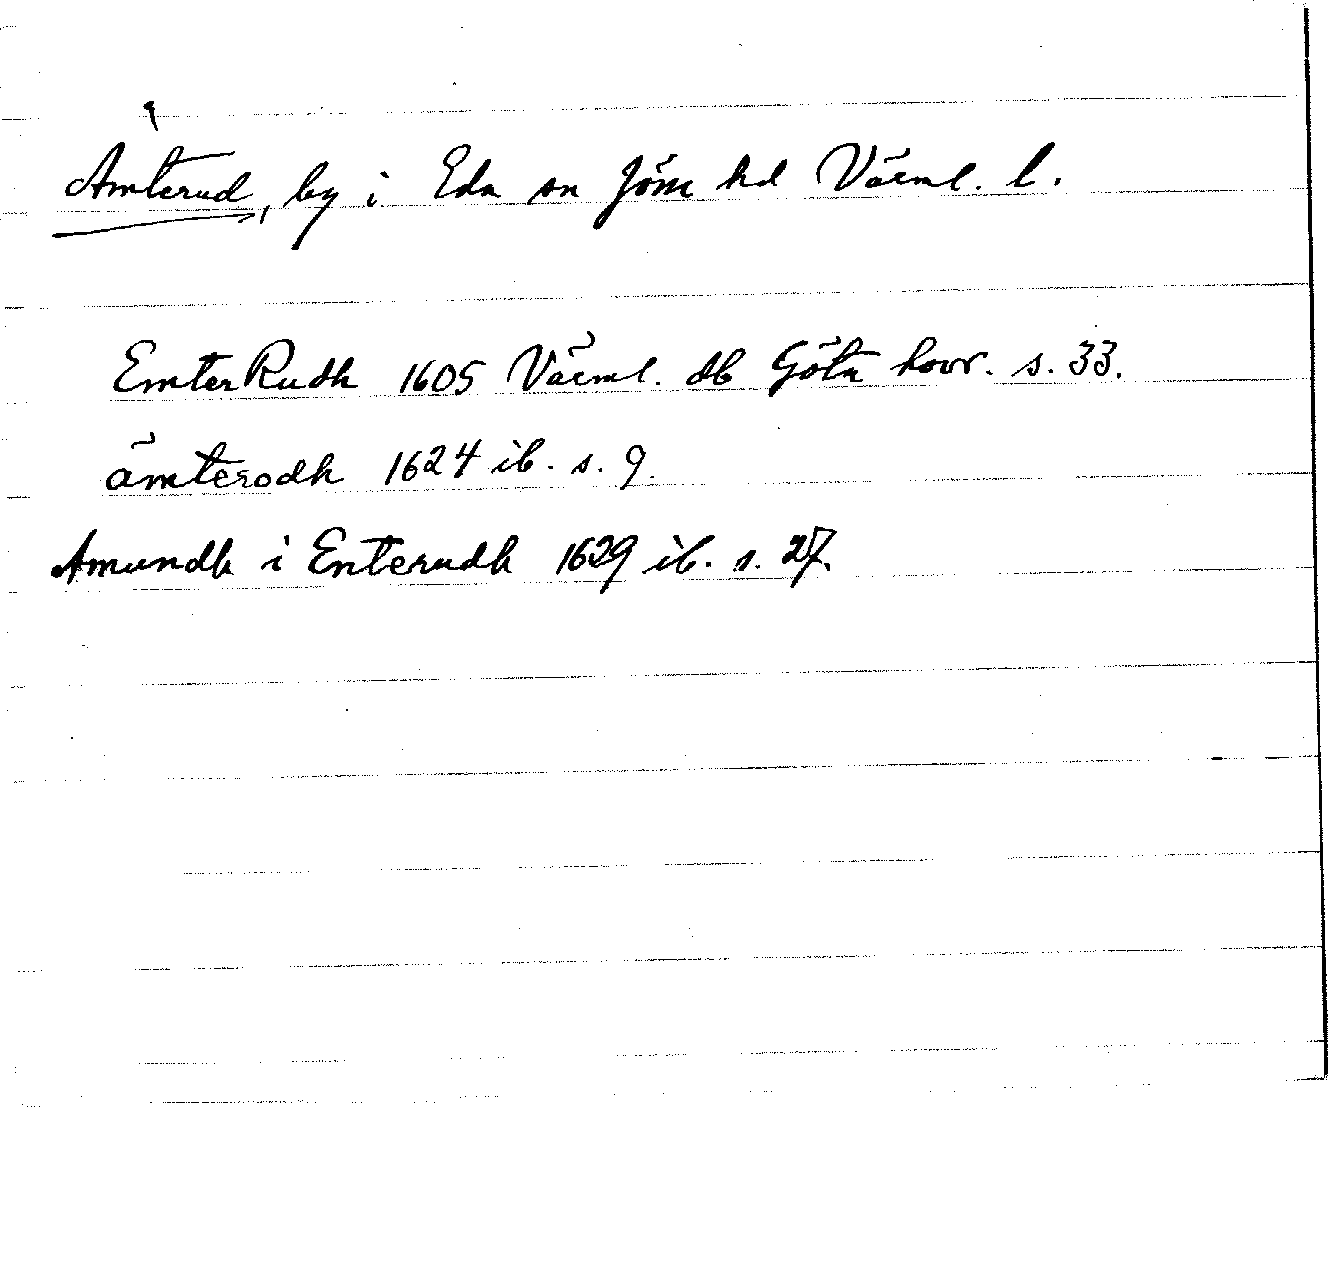 Ämterud, by i Eda sn Jöss hd Värml. l.
EmterRudh 1605 Värml. db Göta hovr. s. 33.
ämterodh 1624 ib. s. 9.
Amundh i Enterudh 1629 ib. s. 27.